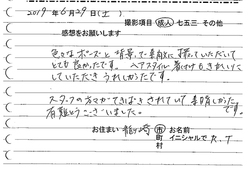 2019年6月29日(土)
撮影項目 成人 七五三 その他
感想をお願いします
色々なポーズと背景で素敵に撮っていただいて
とても良かったです。ヘアスタイル着付けもきれいにして
いただきうれしかったです。
スタッフの方々がてきぱきされていて素晴しかったです。
有難うございました。
お住まい 龍ヶ崎 市 お名前
町 イニシャルで K.T
村